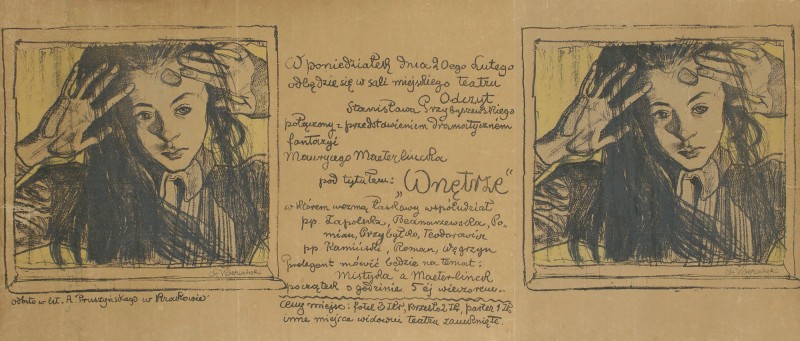 W poniedziałek dnia 20ego Lutego
odbędzie się w sali miejskiego teatru
Odczyt
Stanisława Przybyszewskiego
połączony z przedstawieniem dramatycznem
fantazyi
Maurycego Maeterlincka
pod tytułem: „Wnętrze"
w którem wezmą łaskawy współudział
pp. Zapolska, Bednarzewska, Po-
mian, Przybyłko, Teodorowicz
pp. Kamiński, Roman, Węgrzyn
Prelegent mówić będzie na temat:
Mistyka a Maeterlinck
początek o godzinie 5ej wieczorem.
Ceny miejsc: fotel 3 Złr, krzesło 2 Zł, parter 1 Zł,
inne miejsca widowni teatru zamknięte.
odbito w lit. A. Pruszyńskiego w Krakowie